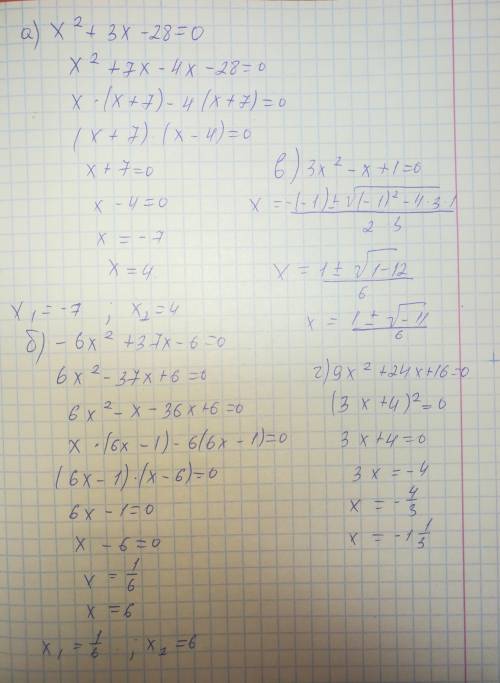 а) x² + 3x - 28 = 0
x² + 7x - 4x - 28 = 0
x · (x + 7) - 4 (x + 7) = 0
(x + 7) · (x - 4) = 0
x + 7 = 0
x - 4 = 0
x = -7
x = 4
x₁ = -7 ; x₂ = 4
б) - 6x² + 37x - 6 = 0
6x² - 37x + 6 = 0
6x² - x - 36x + 6 = 0
x · (6x - 1) - 6(6x - 1) = 0
(6x - 1) · (x - 6) = 0
6x - 1 = 0
x - 6 = 0
x = 1/6
x = 6
x₁ = 1/6 ; x₂ = 6
в) 3x² - x + 1 = 0
x = -(-1) ± √(-1)² - 4 · 3 · 1 / 2 · 3
x = 1 ± √1 - 12 / 6
x = 1 ± √-11 / 6
г) 9x² + 24x + 16 = 0
(3x + 4)² = 0
3x + 4 = 0
3x = -4
x = -4/3
x = -1 1/3